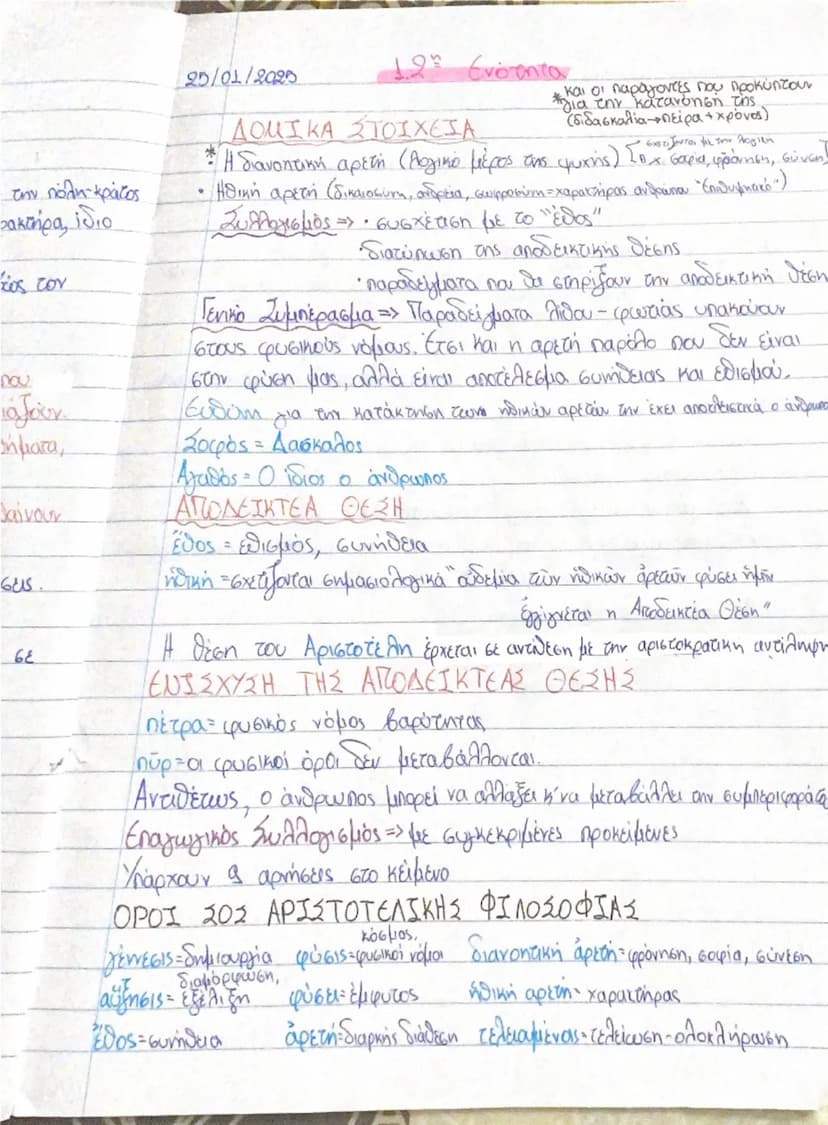 25/01/2025
12η Ενότητα
*και οι παράγοντες που προκύπτουν
για την κατανόησή της
(διδασκαλία→πείρα+χρόνος)
ΔΟΜΙΚΑ ΣΤΟΙΧΕΙΑ
σχετίζονται με την λογική
* Η διανοητική αρετή (λογικό μέρος της ψυχής) [π.χ. σοφία, φρόνηση, σύνεση]
• Ηθική αρετή (δικαιοσύνη, ανδρεία, σωφροσύνη=χαρακτήρας ανθρώπου "Επιθυμητικό")
Συλλογισμός => • συσχέτιση με το "ἔθος"
•διατύπωση της αποδεικτικής θέσης
•παραδείγματα που θα στηρίξουν την αποδεικτική θέση
Γενικό Συμπέρασμα => Παραδείγματα λίθου - φωτιάς υπακούουν
στους φυσικούς νόμους. Έτσι και η αρετή παρόλο που δεν είναι
στην φύση μας, αλλά είναι αποτέλεσμα συνήθειας και εθισμού.
Ευθύνη για την κατάκτηση των ηθικών αρετών την έχει αποκλειστικά ο άνθρωπο
Σοφός = Δάσκαλος
Αγαθός = Ο ίδιος ο άνθρωπος
ΑΠΟΔΕΙΚΤΕΑ ΘΕΣΗ
ἔθος = εθισμός, συνήθεια
ἠθική = σχετίζονται σημασιολογικά "οὐδεμία τῶν ἠθικῶν ἀρετῶν φύσει ἡμῖν
ἐγγίγνεται η Αποδεικτέα Θέση"
Η θέση του Αριστοτέλη έρχεται σε αντίθεση με την αριστοκρατική αντίληψη
ΕΝΙΣΧΥΣΗ ΤΗΣ ΑΠΟΔΕΙΚΤΕΑΣ ΘΕΣΗΣ
πέτρα = φυσικός νόμος βαρύτητας
πῦρ = οι φυσικοί όροι δεν μεταβάλλονται.
Αντιθέτως, ο άνθρωπος μπορεί να αλλάξει κ' να μεταβάλλει την συμπεριφορά
Επαγωγικός Συλλογισμός => με συγκεκριμένες προκείμενες
Υπάρχουν 9 αρνήσεις στο κείμενο
ΟΡΟΙ SOS ΑΡΙΣΤΟΤΕΛΙΚΗΣ ΦΙΛΟΣΟΦΙΑΣ
κόσμος,
γένεσις = δημιουργία φύσις = φυσικοί νόμοι διανοητική ἀρετή = φρόνηση, σοφία, σύνεση
διαμόρφωση,
αὔξησις = εξέλιξη φύσει = έμφυτος ἠθική αρετή = χαρακτήρας
ἔθος = συνήθεια ἀρετή = διαρκής διάθεση τελειωμένοις = τελείωση - ολοκλήρωση
την πόλη-κράτος
ρακτήρα, ίδιο
έλος τον
που
ιάζουν
ήματα,
βαίνουν
σεις.
σε